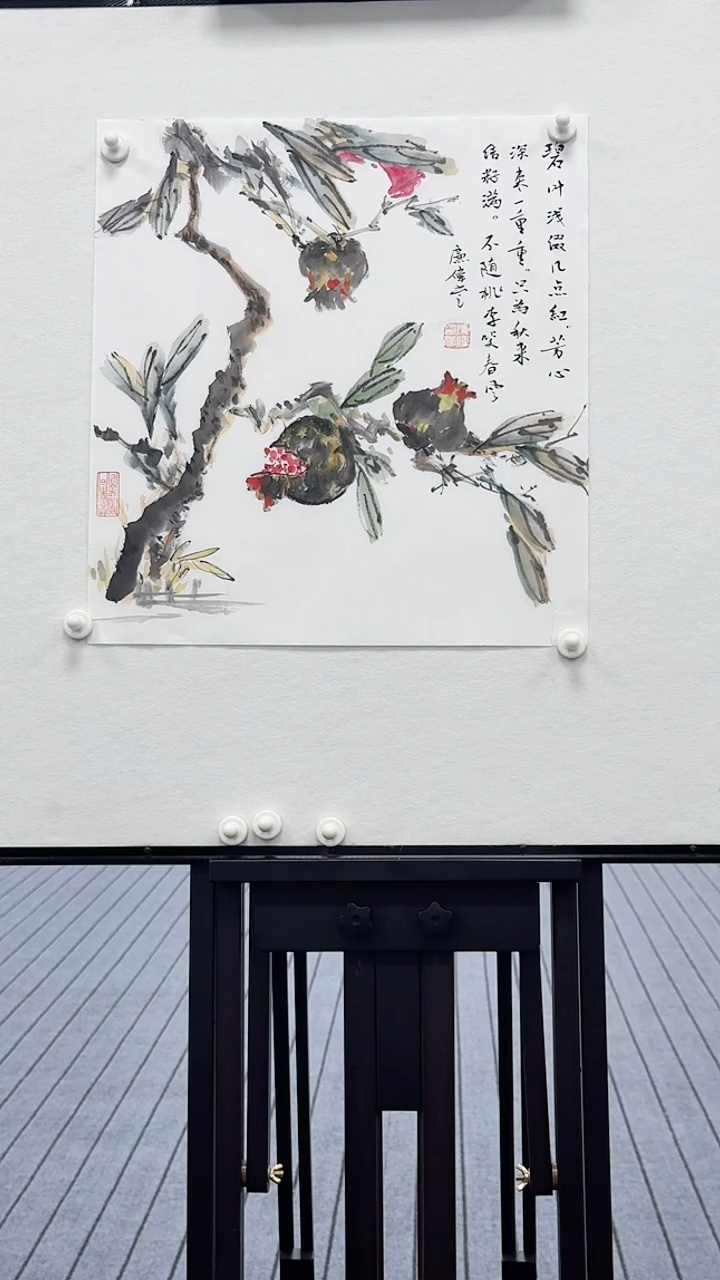 碧叶浅缀几点红。芳心
深束一重重。只为秋来
结籽满。不随桃李笑春风
廉伟